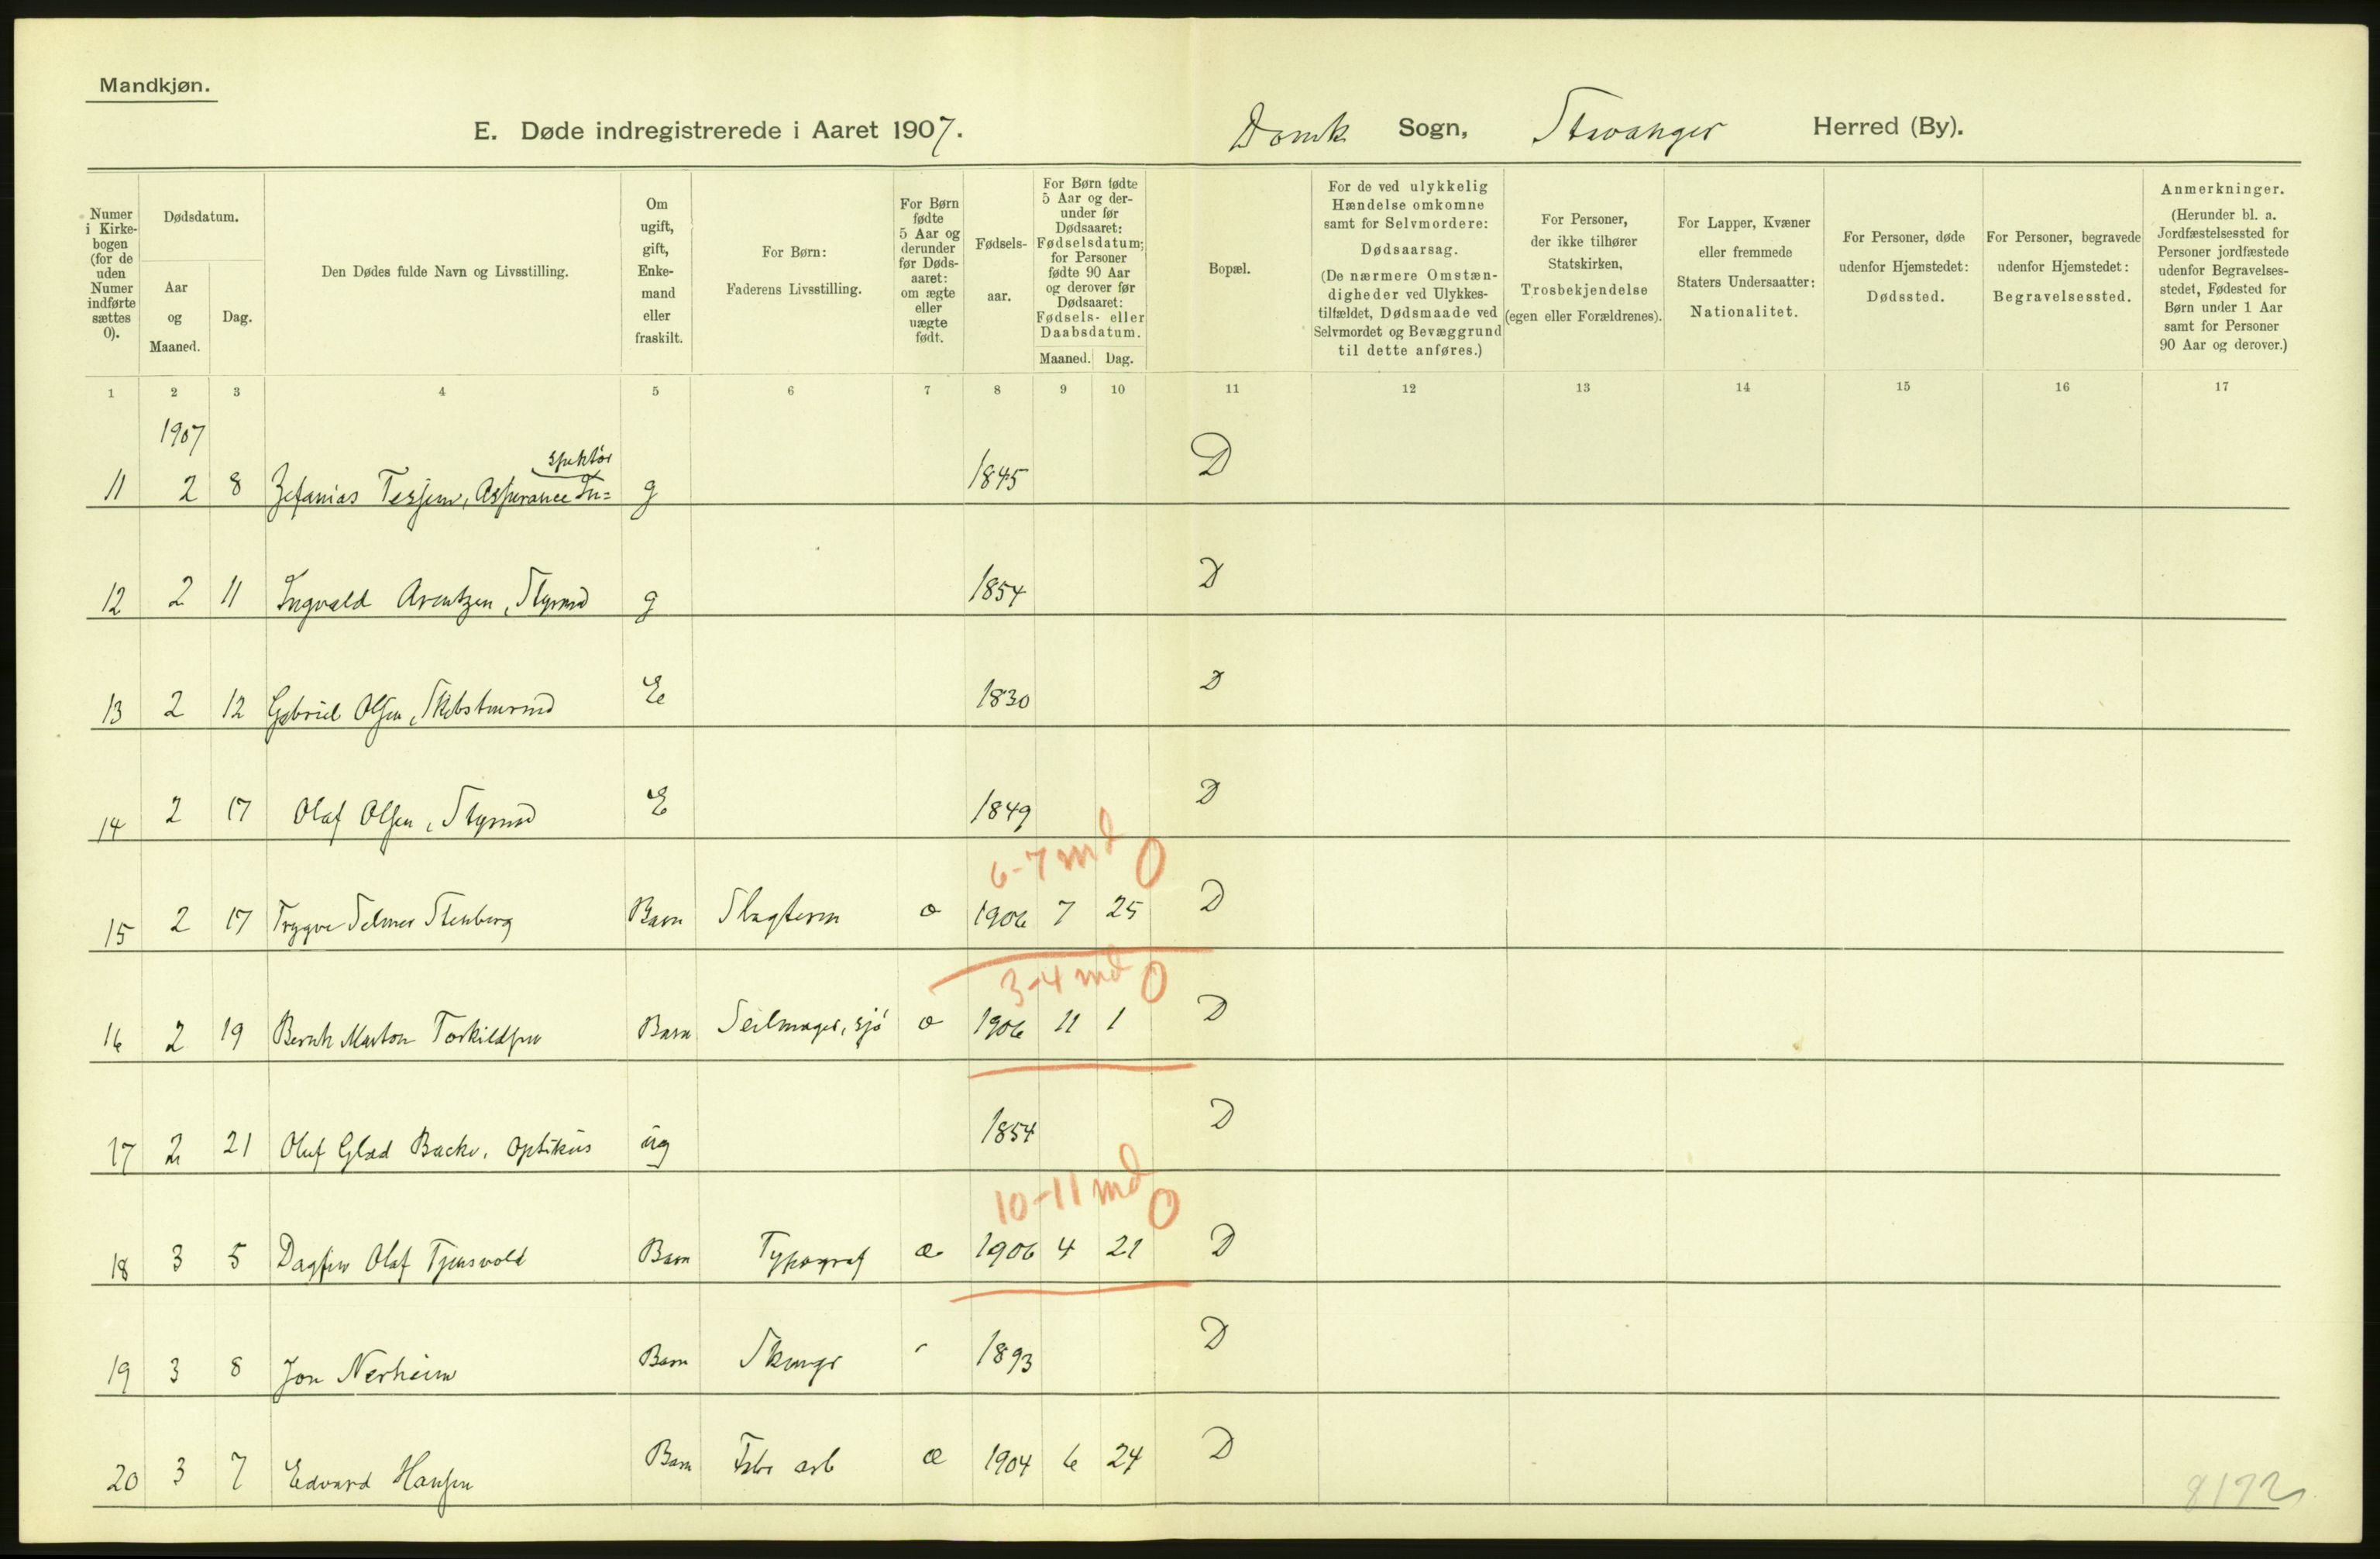 Mandkjøn.
E. Døde indregistrerede i Aaret 1907. Domk Sogn, Stavanger Herred (By).
Numer i Kirke-bogen (for de uden Numer indførte sættes 0).
Dødsdatum.
Aar og Maaned.
Dag.
Den Dødes fulde Navn og Livsstilling.
Om ugift, gift, Enke-mand eller fraskilt.
For Børn: Faderens Livsstilling.
For Børn fødte 5 Aar og derunder før Døds-aaret: om ægte eller uægte født.
Fødsels-aar.
For Børn fødte 5 Aar og der-under før Dødsaaret: Fødselsdatum; for Personer fødte 90 Aar og derover før Dødsaaret: Fødsels- eller Daabsdatum.
Maaned. Dag.
Bopæl.
For de ved ulykkelig Hændelse omkomne samt for Selvmordere: Dødsaarsag. (De nærmere Omstæn-digheder ved Ulykkes-tilfældet, Dødsmaade ved Selvmordet og Bevæggrund til dette anføres.)
For Personer, der ikke tilhører Statskirken, Trosbekjendelse (egen eller Forældrenes).
For Lapper, Kvæner eller fremmede Staters Undersaatter: Nationalitet.
For Personer, døde udenfor Hjemstedet: Dødssted.
For Personer, begravede udenfor Hjemstedet: Begravelsessted.
Anmerkninger. (Herunder bl. a. Jordfæstelsessted for Personer jordfæstede udenfor Begravelses-stedet, Fødested for Børn under 1 Aar samt for Personer 90 Aar og derover.)
1 2 3 4 5 6 7 8 9 10 11 12 13 14 15 16 17
1907
spektør
11 2 8 Zefanias Tesjem, Assurance In= g 1845 D
12 2 11 Ingvald Arentzen, Styrmd g 1854 D
13 2 12 Gabriel Olsen, E 1830 D
14 2 17 Olaf Olsen, Styrmd E 1849 D
6-7 md 0
15 2 17 Trygve Selmer Stenberg Barn Slagtersv 1906 7 25 D
3-4 md 0
16 2 19 Bernh Marton Torkildsen Barn Seilmager, sjø 1906 11 1 D
17 2 21 Oluf Glad Backe, Optikus ug 1854 D
10-11 md 0
18 3 5 Dagfin Olaf Tjensvold Barn Typograf æ 1906 4 21 D
19 3 8 Jon Nerheim Barn 1893 D
20 3 7 Edvard Hansen Barn Fabr arb æ 1904 6 24 D
8172